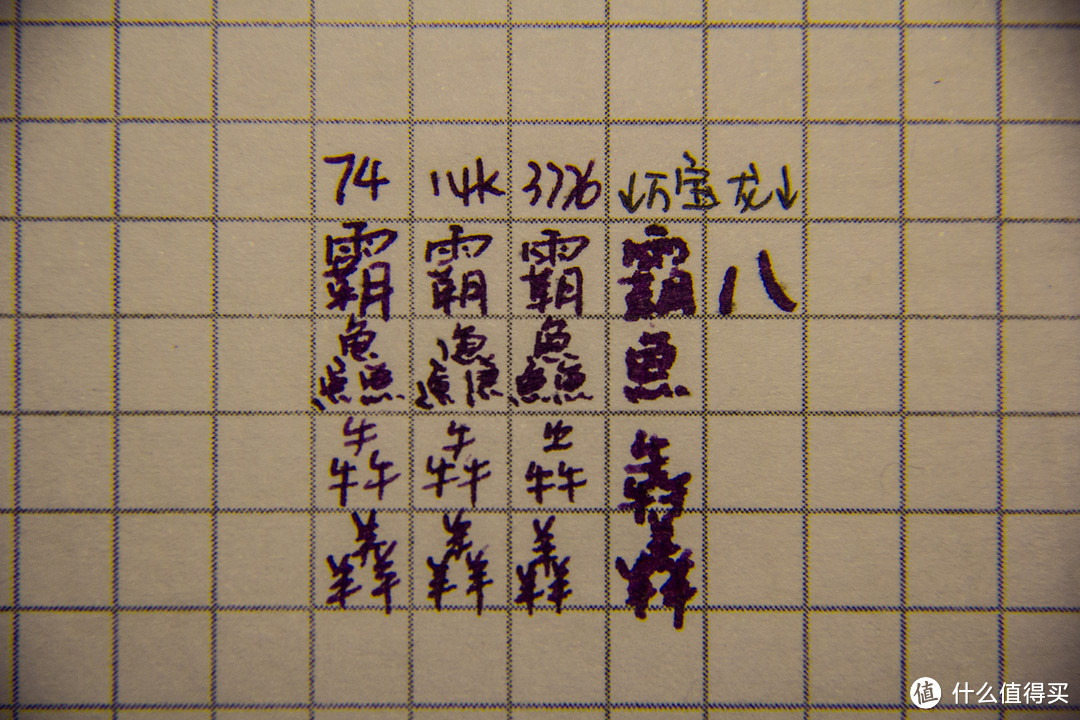 74 14k 3776 ↓万宝龙↓
霸 霸 霸 霸 八
鱻 鱻 鱻 魚
犇 犇 犇 犇
羴 羴 羴 羴
值 什么值得买